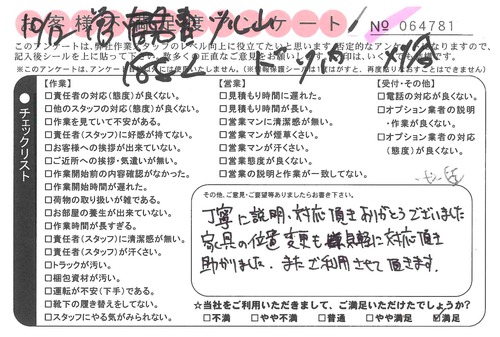 お客様不満足度アンケート
№ 064781
このアンケートは、弊社作業スタッフのレベル向上に役立てたいと思います。否定的なアンケートになりますので、
記入後シールを上に貼って下さい。数多くの正直なご意見をお願いします。
※このアンケートは、
チェックリスト
【作業】
□責任者の対応(態度)が良くない。
□他のスタッフの対応(態度)が良くない。
□作業を見ていて不安がある。
□責任者(スタッフ)に好感が持てない。
□お客様への挨拶が出来ていない。
□ご近所への挨拶・気遣いが無い。
□作業開始前の内容確認がなかった。
□作業開始時間が遅れた。
□荷物の取り扱いが雑である。
□お部屋の養生が出来ていない。
□作業時間が長すぎる。
□責任者(スタッフ)に清潔感が無い。
□責任者(スタッフ)が汗くさい。
□トラックが汚い。
□梱包資材が汚い。
□運転が不安(下手)である。
□靴下の履き替えをしてない。
□スタッフにやる気がみられない。
【営業】
□見積もり時間に遅れた。
□見積もり時間が長い。
□営業マンに清潔感が無い。
□営業マンが煙草くさい。
□営業マンが汗くさい。
□営業態度が良くない。
□営業の説明と作業が一致してない。
【受付・その他】
□電話の対応が良くない。
□オプション業者の説明
・作業が良くない。
□オプション業者の対応
(態度)が良くない。
その他、ご意見・ご要望等ありましたらお書き下さい。
丁寧に説明、対応頂きありがとうございました
家具の位置変更も気軽に対応頂き
助かりました。またご利用させて頂きます。
☆当社をご利用いただきまして、ご満足いただけたでしょうか?
□不満 □やや不満 □普通 □やや満足 ☑満足